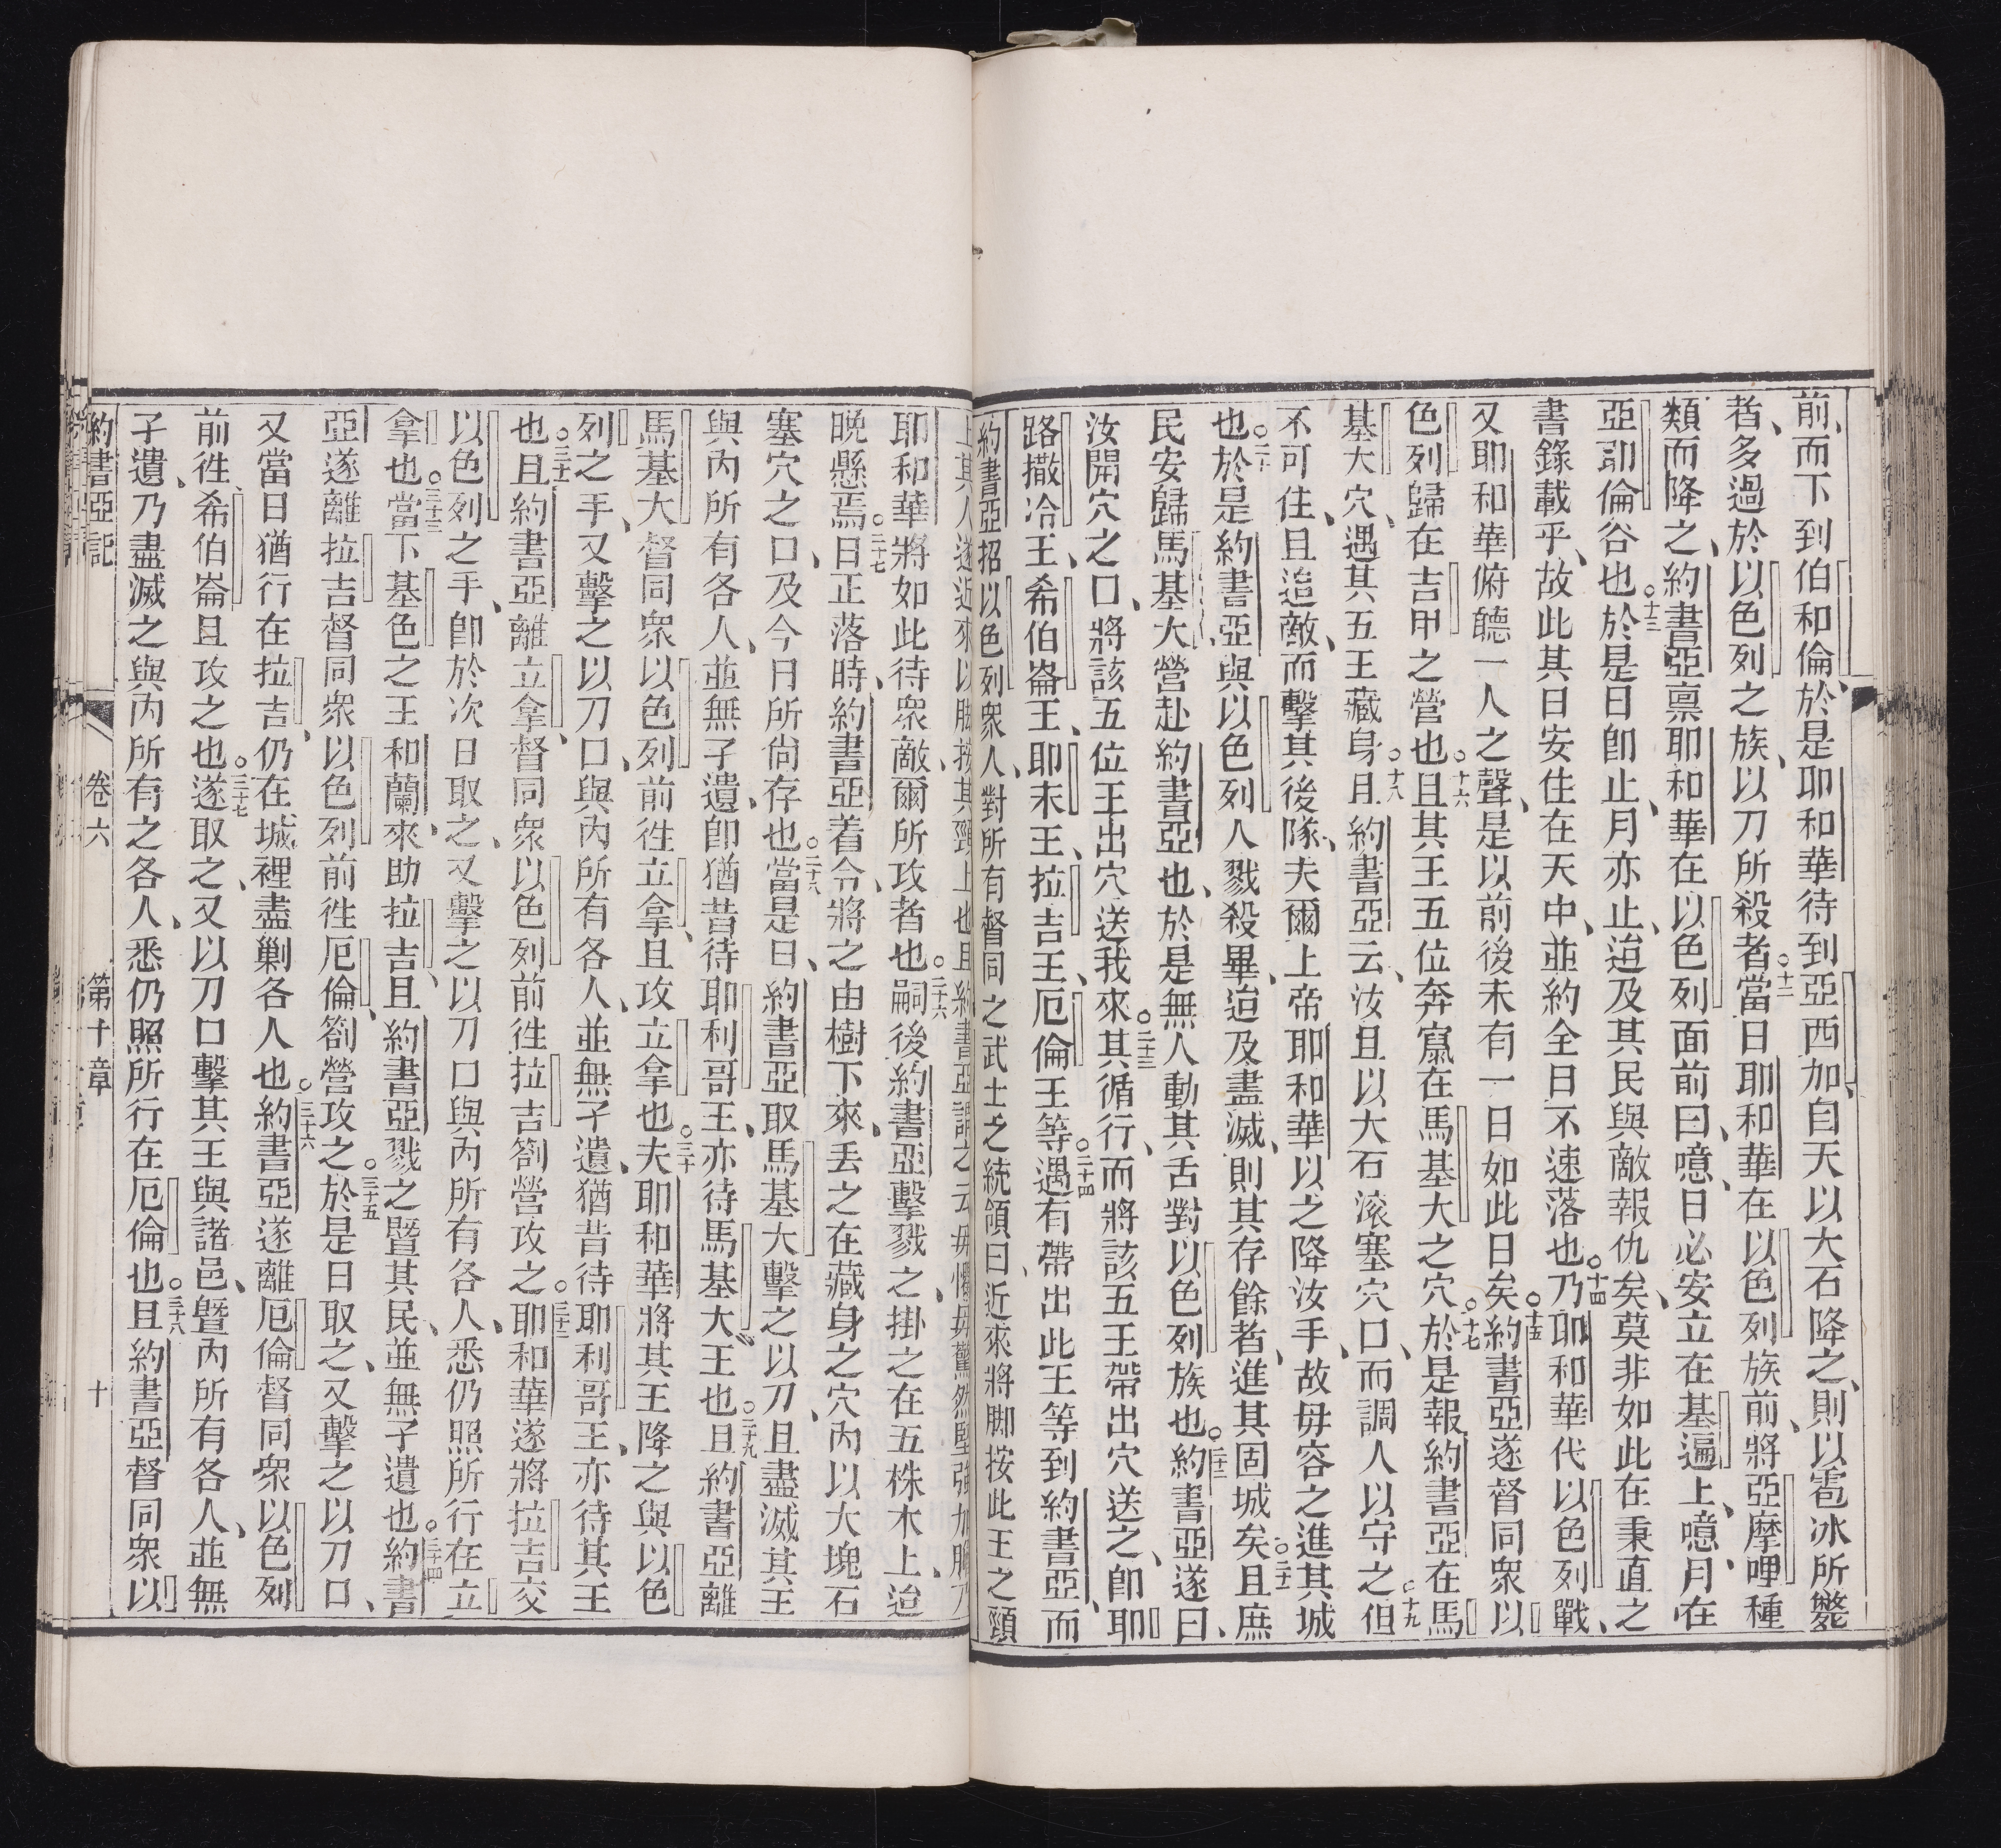 前、而下到伯和倫、於是耶和華待到亞西加、自天以大石降之、則以雹冰所斃
者、多過於以色列之族、以刀所殺者○十二當日耶和華在以色列族前、將亞摩哩種
類而降之、約書亞禀耶和華在以色列面前曰、噫、日必安立在基遍上、噫、月在
亞耶倫谷也○十三於是日卽止、月亦止、迨及其民與敵報仇矣、莫非如此在秉直之
書錄載乎、故此其日安住在天中、並約全日不速落也○十四乃耶和華代以色列戰、
又耶和華俯聽一人之聲、是以前後未有一日如此日矣○十五約書亞遂督同衆以
色列歸在吉甲之營也○十六且其王五位奔竄在馬基大之穴○十七於是報約書亞在馬
基大穴、遇其五王藏身○十八且約書亞云、汝且以大石滚塞穴口、而調人以守之○十九但
不可住、且追敵、而擊其後隊、夫爾上帝耶和華以之降汝手、故毋容之進其城
也○二十於是約書亞與以色列人戮殺畢、迨及盡滅、則其存餘者、進其固城矣○二十一且庶
民安歸馬基大營赴約書亞也、於是無人動其舌對以色列族也○二十二約書亞遂曰、
汝開穴之口、將該五位王出穴送我來○二十三其循行、而將該五王帶出穴送之、卽耶
路撒冷王、希伯崙王、耶末王、拉吉王、厄倫王等○二十四遇有帶出此王等到約書亞、而
約書亞招以色列衆人、對所有督同之武士之統領曰、近來將脚按此王之頸
上、其人遂近來以脚按其頸上也○二十五且約書亞謂之云、毋懼毋驚然堅強加膽、乃
耶和華將如此待衆敵、爾所攻者也○二十六嗣後約書亞擊戮之、掛之在五株木上、迨
晚懸焉○二十七日正落時、約書亞着令、將之由樹下來、丢之在藏身之穴、內以大塊石
塞穴之口、及今日所尙存也○二十八當是日、約書亞取馬基大擊之以刀、且盡滅其王
與內所有各人、並無孑遺、卽猶昔待耶利哥王、亦待馬基大王也○二十九且約書亞離
馬基大督同衆以色列前徃立拿、且攻立拿也○三十夫耶和華將其王降之與以色
列之手、又擊之以刀口、與內所有各人、並無孑遺、猶昔待耶利哥王、亦待其王
也○三十一且約書亞離立拿、督同衆以色列前徃拉吉劄營攻之○三十二耶和華遂將拉吉交
以色列之手、卽於次日取之、又擊之以刀口與內所有各人、悉仍照所行在立
拿也○三十三當下基色之王和蘭來助拉吉、且約書亞戮之暨其民、並無孑遺也○三十四約書
亞遂離拉吉督同衆以色列前徃厄倫、劄營攻之○三十五於是日取之、又擊之以刀口、
又當日猶行在拉吉、仍在城裡盡剿各人也○三十六約書亞遂離厄倫督同衆以色列
前徃希伯崙且攻之也○三十七遂取之、又以刀口擊其王與諸邑、暨內所有各人、並無
孑遺、乃盡滅之與內所有之各人、悉仍照所行在厄倫也○三十八且約書亞督同衆以
約書亞記 卷六 第十章 十